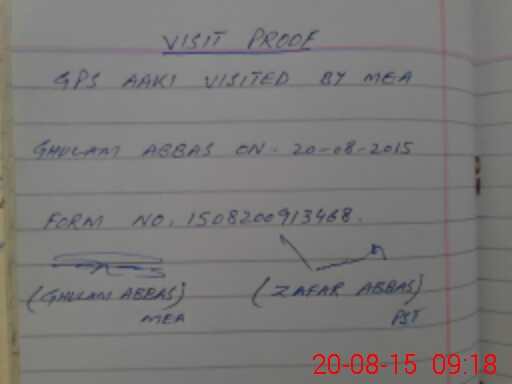 VISIT PROOF
GPS AAKI VISITED BY MEA
GHULAM ABBAS ON. 20-08-2015
FORM NO. 1508200913468.
(GHULAM ABBAS) (ZAFAR ABBAS)
MEA PST
20-08-15 09:18